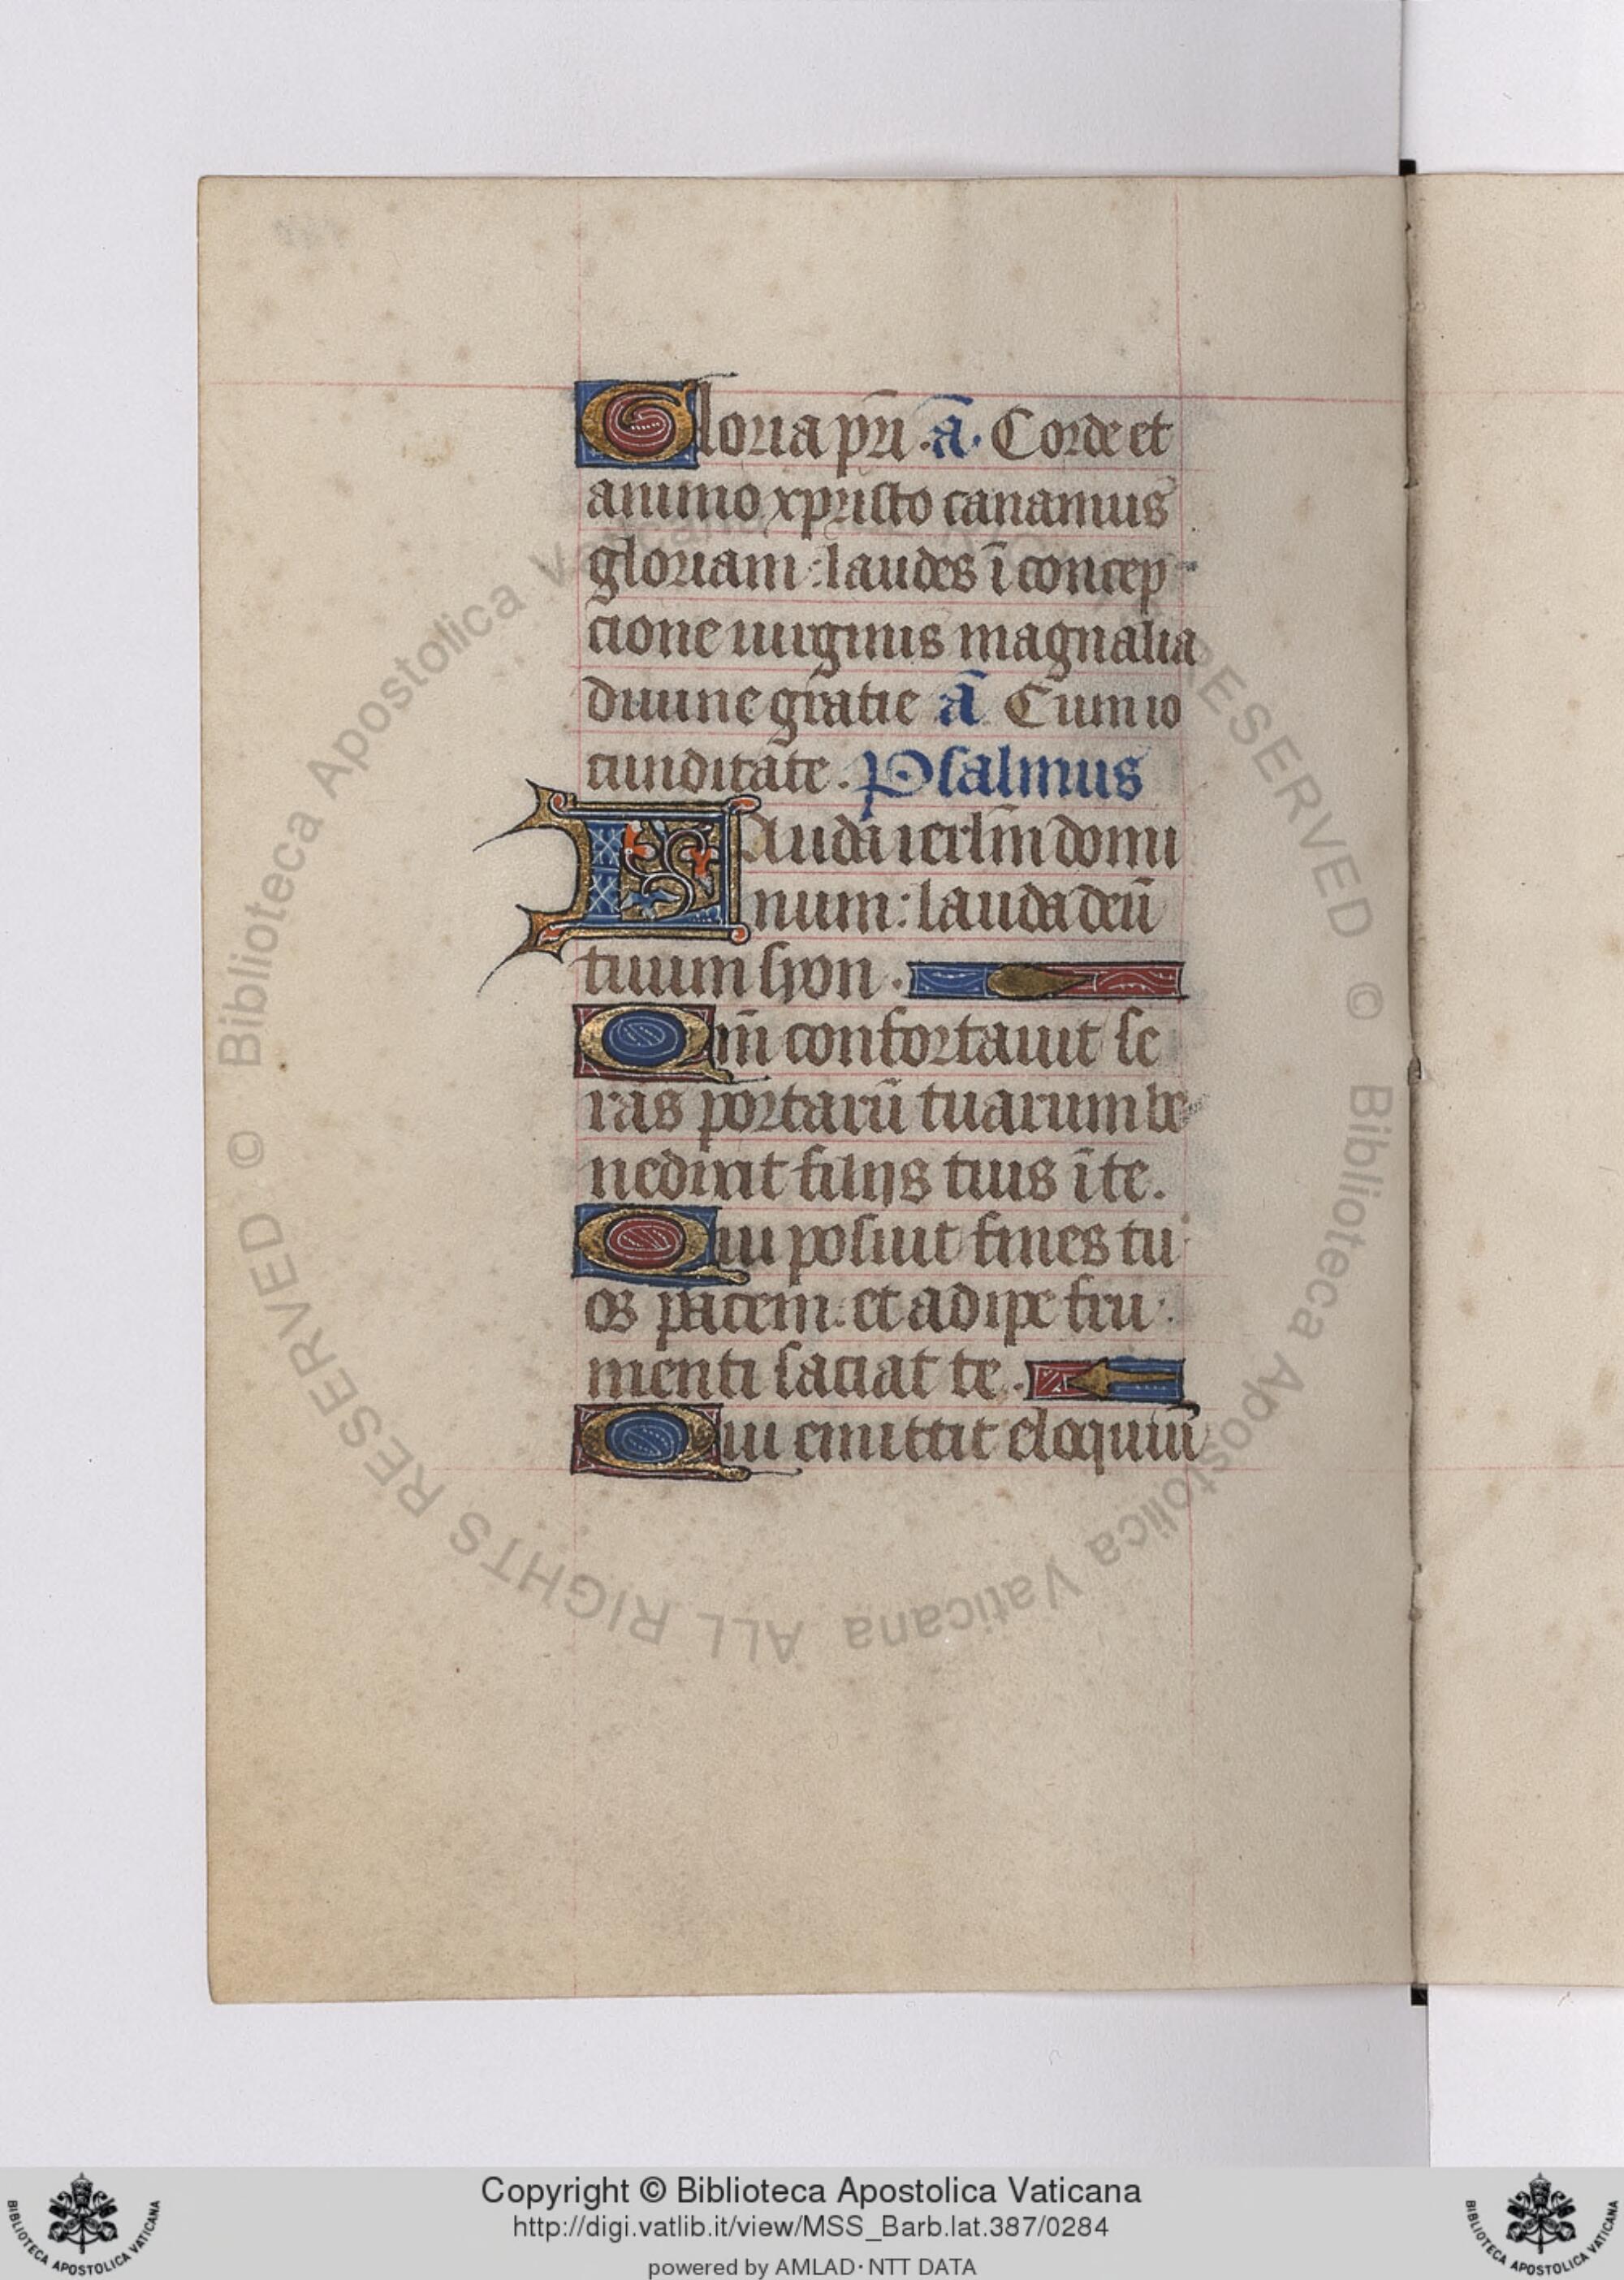 Gloria pr̄i . ā . Corde et
animo xpristo canamus
gloriam : laudes ī concep
cione uirginis magnalia
diuine gratie ā Cum io
cunditate . Psalmus
Lauda ierl̄m domi
num : lauda deū
tuum syon .
Qm̄ confortauit se
ras portarū tuarum be
nedixit filijs tuis ī te .
Qui posuit fines tu
os pacem . et adipe fru
menti saciat te .
Qui emittit eloquiū
© Biblioteca Apostolica Vaticana ALL RIGHTS RESERVED © Biblioteca Apostolica Vaticana ALL RIGHTS RESERVED
Copyright © Biblioteca Apostolica Vaticana
http://digi.vatlib.it/view/MSS_Barb.lat.387/0284
powered by AMLAD·NTT DATA
BIBLIOTECA APOSTOLICA VATICANA
BIBLIOTECA APOSTOLICA VATICANA